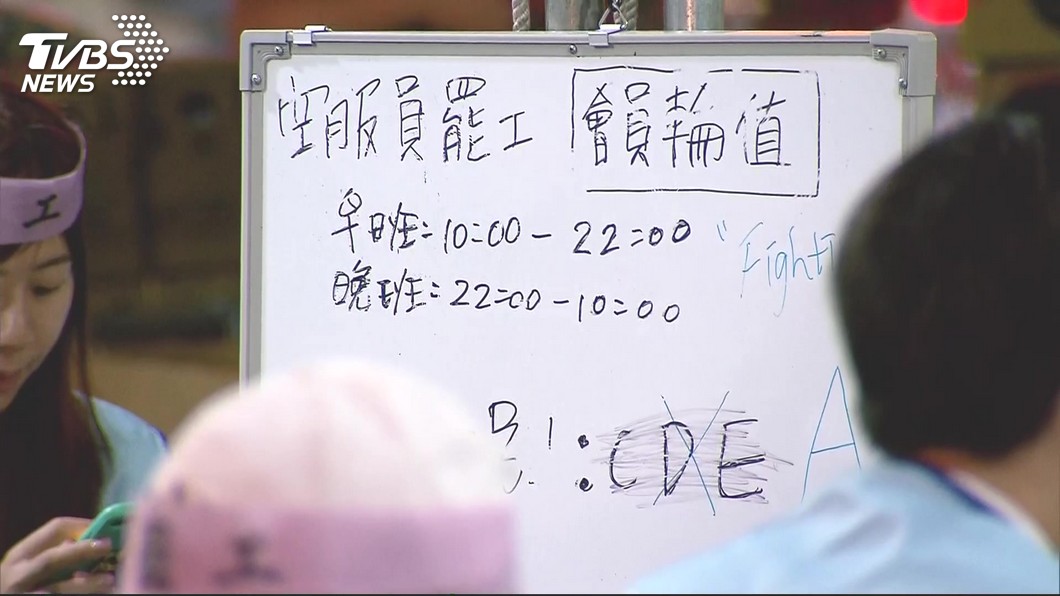 TVBS
NEWS
空服員罷工 會員輪值
早班:10:00-22:00
晚班:22:00-10:00
"Fight
: CDE A
工
工